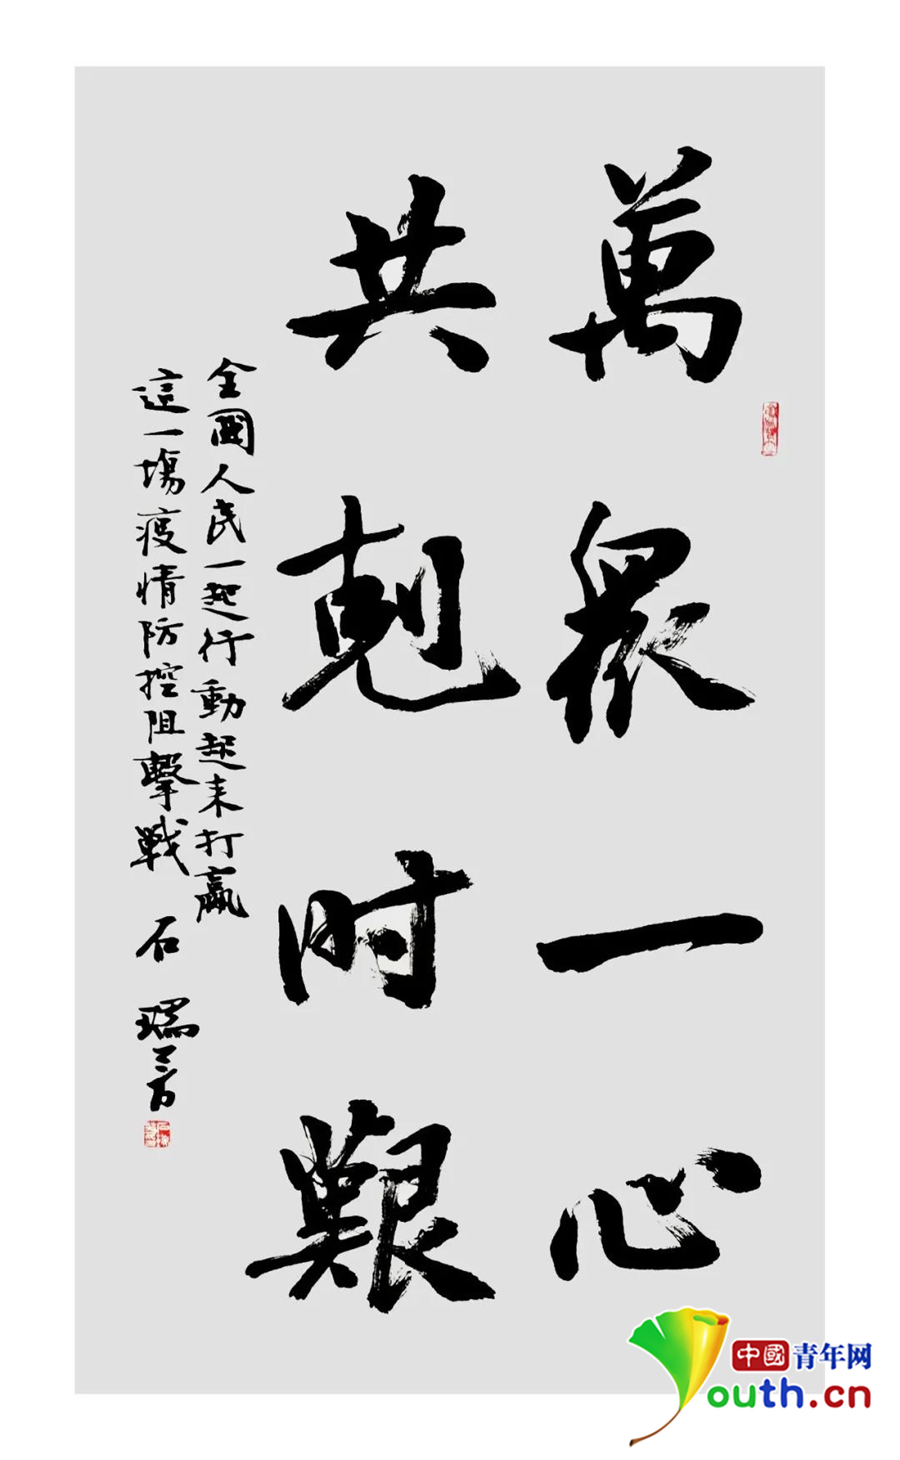 萬眾一心
共剋时艱
全國人民一起行動起来打贏
這一場疫情防控阻擊戰 石瑞芳
中國青年网
Youth.cn